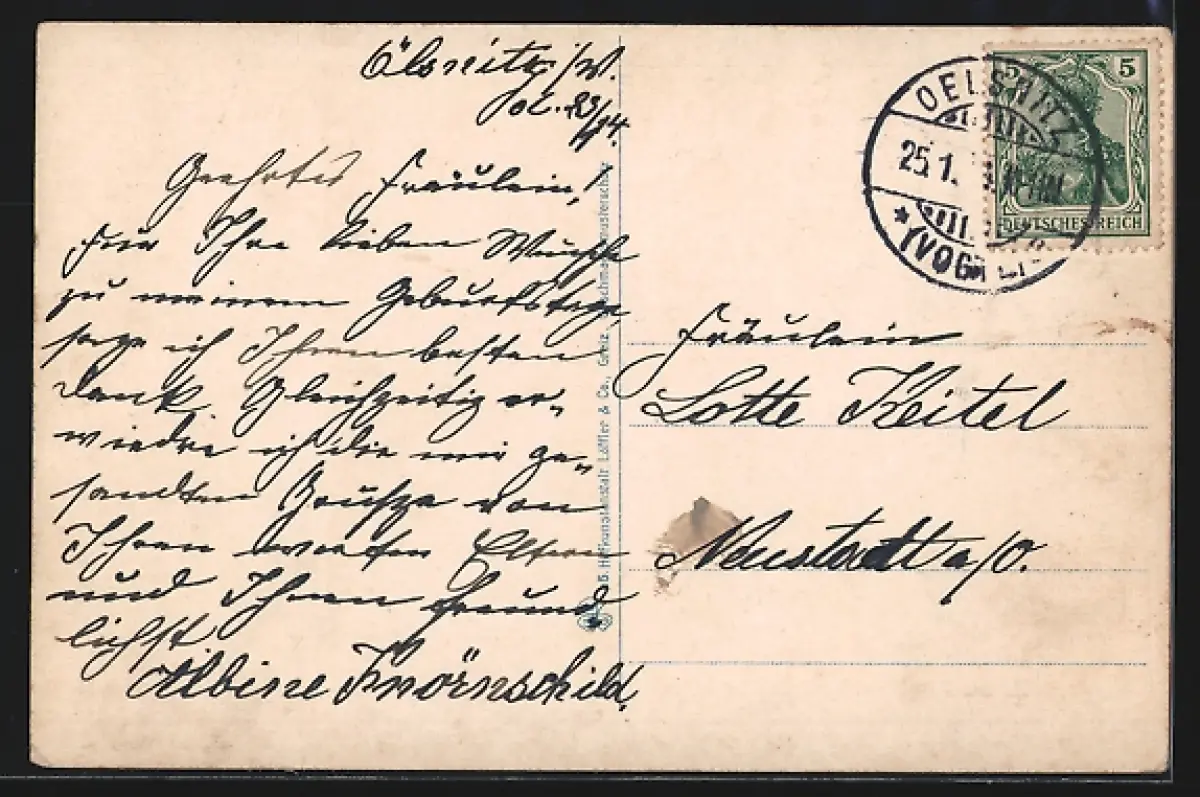 Ölsnitz i/V.
d. 23/1.14.
Geehrtes Fräulein!
Für Ihre lieben Wünsche
zu meinem Geburtstage,
sage ich Ihnen besten
Dank. Gleichzeitig er-
wiedre ich die mir ge-
sandten Grüsse von
Ihren werten Eltern
und Ihnen freund
lichst
Albine Knörnschild.
OELSNITZ
25.1.
(VOGTL.)
5 5
DEUTSCHES REICH
Fräulein
Lotte Keitel
Neustadt a/O.
Hofkunstanstalt Löffler & Co., Greiz